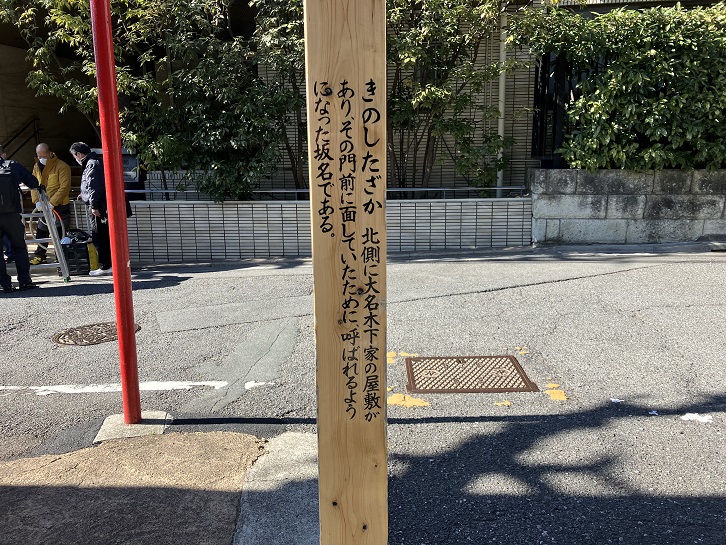 きのしたざか 北側に大名木下家の屋敷が
あり、その門前に面していたために、呼ばれるよう
になった坂名である。